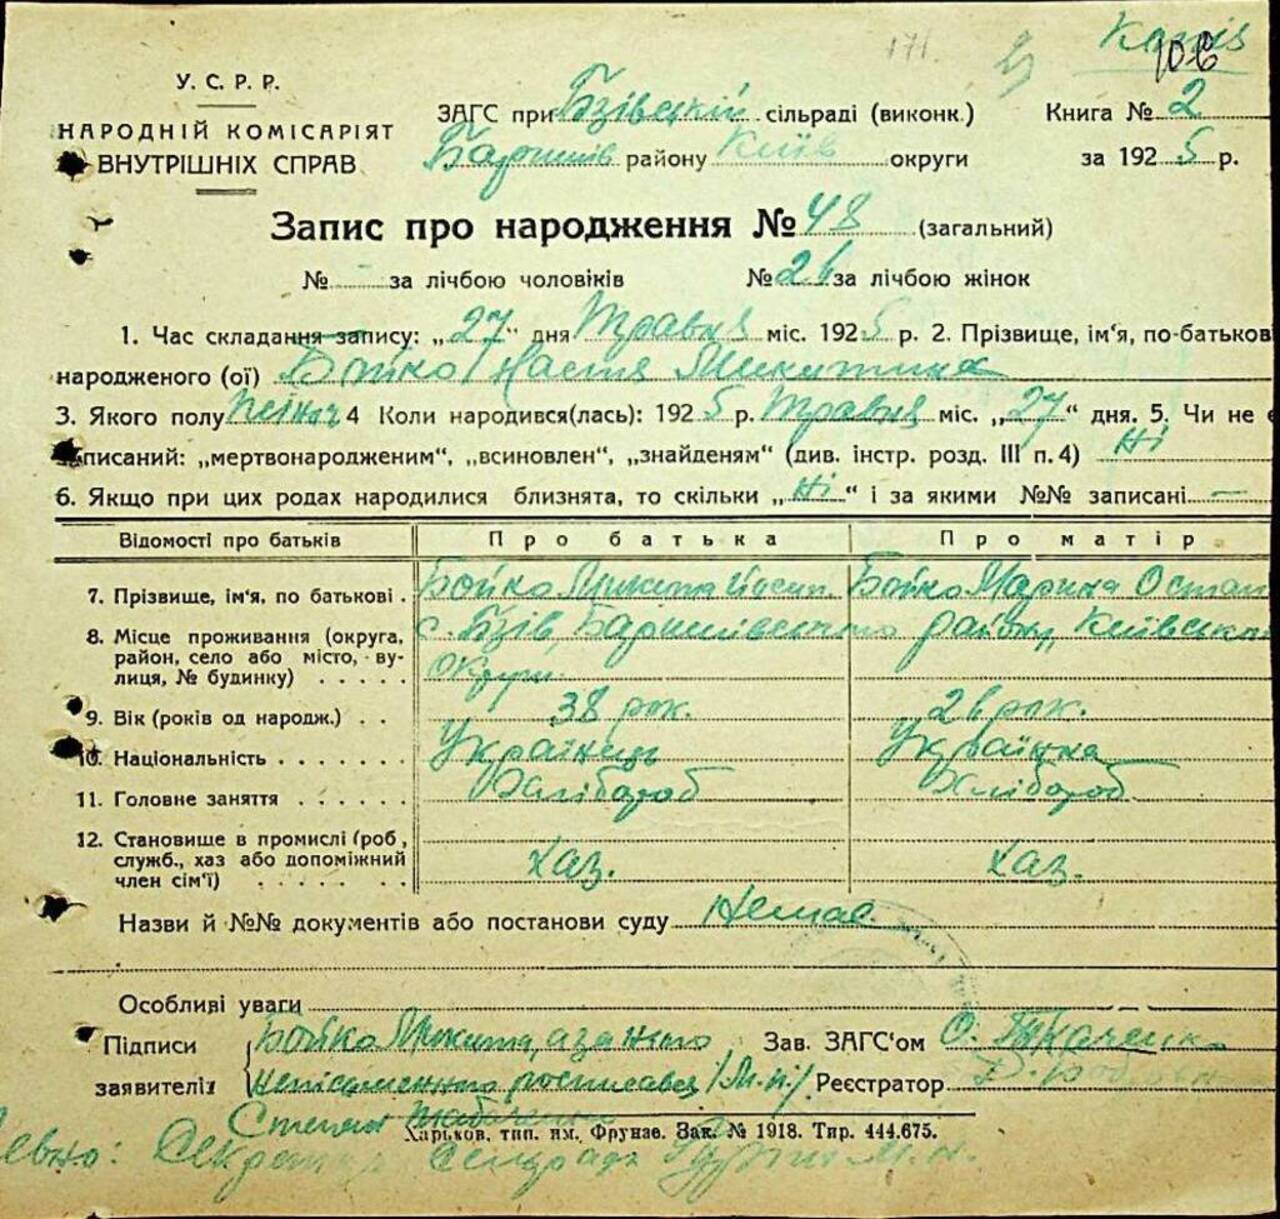 171
Копія
У. С. Р. Р.
НАРОДНІЙ КОМІСАРІЯТ
ВНУТРІШНІХ СПРАВ
ЗАГС при Бзівській сільраді (виконк.) Книга № 2
Баришів району Київ округи за 1925 р.
Запис про народження № 48 (загальний)
№ - за лічбою чоловіків № 26 за лічбою жінок
1. Час складання запису: „27“ дня Травня міс. 1925 р. 2. Прізвище, ім'я, по-батькові
народженого (ої) Бойко Настя Микитина
3. Якого полу жіноч 4 Коли народився(лась): 1925 р. Травня міс. „27“ дня. 5. Чи не є
записаний: „мертвонародженим“, „всиновлен“, „знайденям“ (див. інстр. розд. III п. 4) Ні
6. Якщо при цих родах народилися близнята, то скільки „Ні“ і за якими №№ записані —
Відомості про батьків Про батька Про матір
7. Прізвище, ім'я, по батькові . Бойко Микита Йосип. Бойко Марина Остап
8. Місце проживання (округа, район, село або місто, вулиця, № будинку) . . . . . с. Бзів, Баришівського району, Київської
Округи.
9. Вік (років од народж.) . . 38 рок. 26 рок.
10. Національність . . . . . . . Українець Українка
11. Головне заняття . . . . . . Хлібороб Хлібороб
12. Становище в промислі (роб, служб., хаз або допоміжний член сім'ї) . . . . . . . хаз. хаз.
Назви й №№ документів або постанови суду Немає
Особливі уваги
Підписи Бойко Микита, а за нього Зав. ЗАГС'ом О. Ткаченко
заявителів неписаменного росписавсь /М.п./ Реєстратор
Степан
Харьков, тип. им. Фрунзе. Зак. № 1918. Тир. 444.675.
Секретар сільради